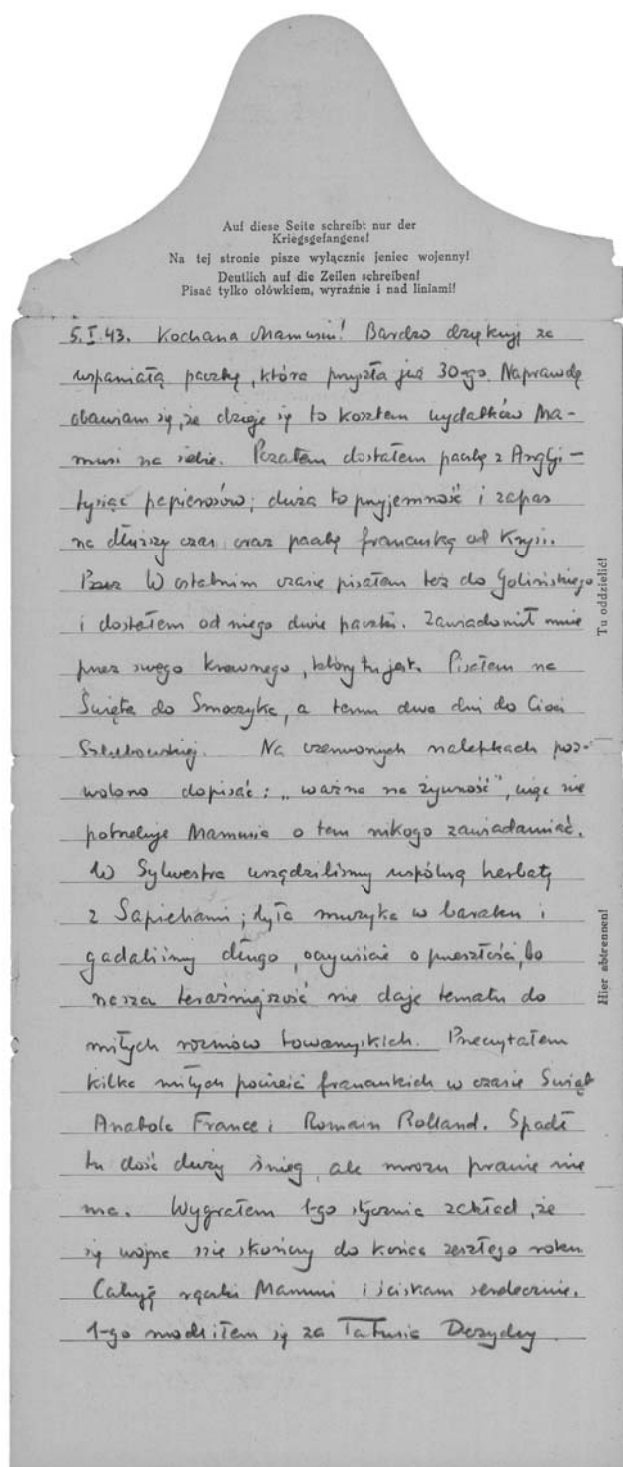 Auf diese Seite schreibt nur der
Kriegsgefangene!
Na tej stronie pisze wyłącznie jeniec wojenny!
Deutlich auf die Zeilen schreiben!
Pisać tylko ołówkiem, wyraźnie i nad liniami!
5.I.43. Kochana Mamusiu! Bardzo dziękuję za
wspaniałą paczkę, która przyszła już 30-go. Naprawdę
obawiam się, że dzieje się to kosztem wydatków Ma-
musi na siebie. Pozatem dostałem paczkę z Anglji –
tysiąc papierosów; duża to przyjemność i zapas
na dłuższy czas oraz paczkę francuską od Krysi.
W ostatnim czasie pisałem też do Golińskiego
i dostałem od niego dwie paczki. Zawiadomił mnie
przez swego krewnego, który tu jest. Pisałem na
Święta do Smoczyka, a temu dwa dni do Cioci
Szłubowskiej. Na czerwonych nalepkach poz-
wolono dopisać: „ważna na żywność", więc nie
potrzebuje Mamusia o tem nikogo zawiadamiać.
W Sylwestra urządziliśmy wspólną herbatę
z Sapiehami; była muzyka w baraku i
gadaliśmy długo, oczywiście o przeszłości, bo
nasza teraźniejszość nie daje tematu do
miłych rozmów towarzyskich. Przeczytałem
kilka miłych powieści francuskich w czasie Świąt
Anatola France i Romain Rolland. Spadł
tu dość duży śnieg, ale mrozu prawie nie
ma. Wygrałem 1-go stycznia zakład, że
się wojna nie skończy do końca zeszłego roku.
Całuję rączki Mamusi i ściskam serdecznie.
1-go modliłem się za Tatusia Dezydery
Tu oddzielić!
Hier abtrennen!